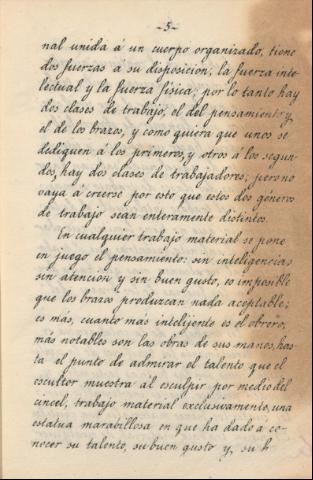 -5-
nal unida á un cuerpo organizado, tiene
dos fuerzas á su disposicion; la fuerza inte-
lectual y la fuerza física; por lo tanto hay
dos clases de trabajo, el del pensamiento y,
el de los brazos, y como quiera que unos se
dediquen á los primeros, y otros á los segun-
dos, hay dos clases de trabajadores; pero no
vaya á creerse por esto que estos dos géneros
de trabajo sean enteramente distintos.
En cualquier trabajo material se pone
en juego el pensamiento: sin inteligencias
sin atencion y sin buen gusto, es imposible
que los brazos produzcan nada aceptable;
es más, cuanto más intelijente es el obrero,
más notables son las obras de sus manos, has-
ta el punto de admirar el talento que el
escultor muestra al esculpir por medio del
cincel, trabajo material exclusivamente, una
estatua marabillosa en que ha dado a co-
nocer su talento, su buen gusto y, su h